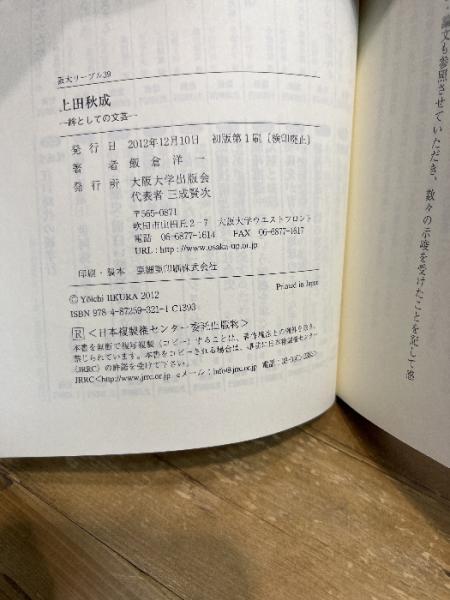 阪大リーブル39
上田秋成
―絆としての文芸―
発行日 2012年12月10日 初版第1刷〔検印廃止〕
著者 飯倉洋一
発行所 大阪大学出版会
代表者 三成賢次
〒565-0871
吹田市山田丘2-7 大阪大学ウエストフロント
電話 06-6877-1614 FAX 06-6877-1617
URL : http://www.osaka-up.or.jp
印刷・製本 亜細亜印刷株式会社
© Yôichi IIKURA 2012
Printed in Japan
ISBN 978-4-87259-321-1 C1393
R <日本複製権センター委託出版物>
本書を無断で複写複製(コピー)することは、著作権法上の例外を除き、
禁じられています。本書をコピーされる場合は、事前に日本複製権センター
(JRRC)の許諾を受けてください。
JRRC<http://www.jrrc.or.jp eメール:info@jrrc.or.jp 電話:
論文も参照させていただき、数々の示唆を受けたことを記して感